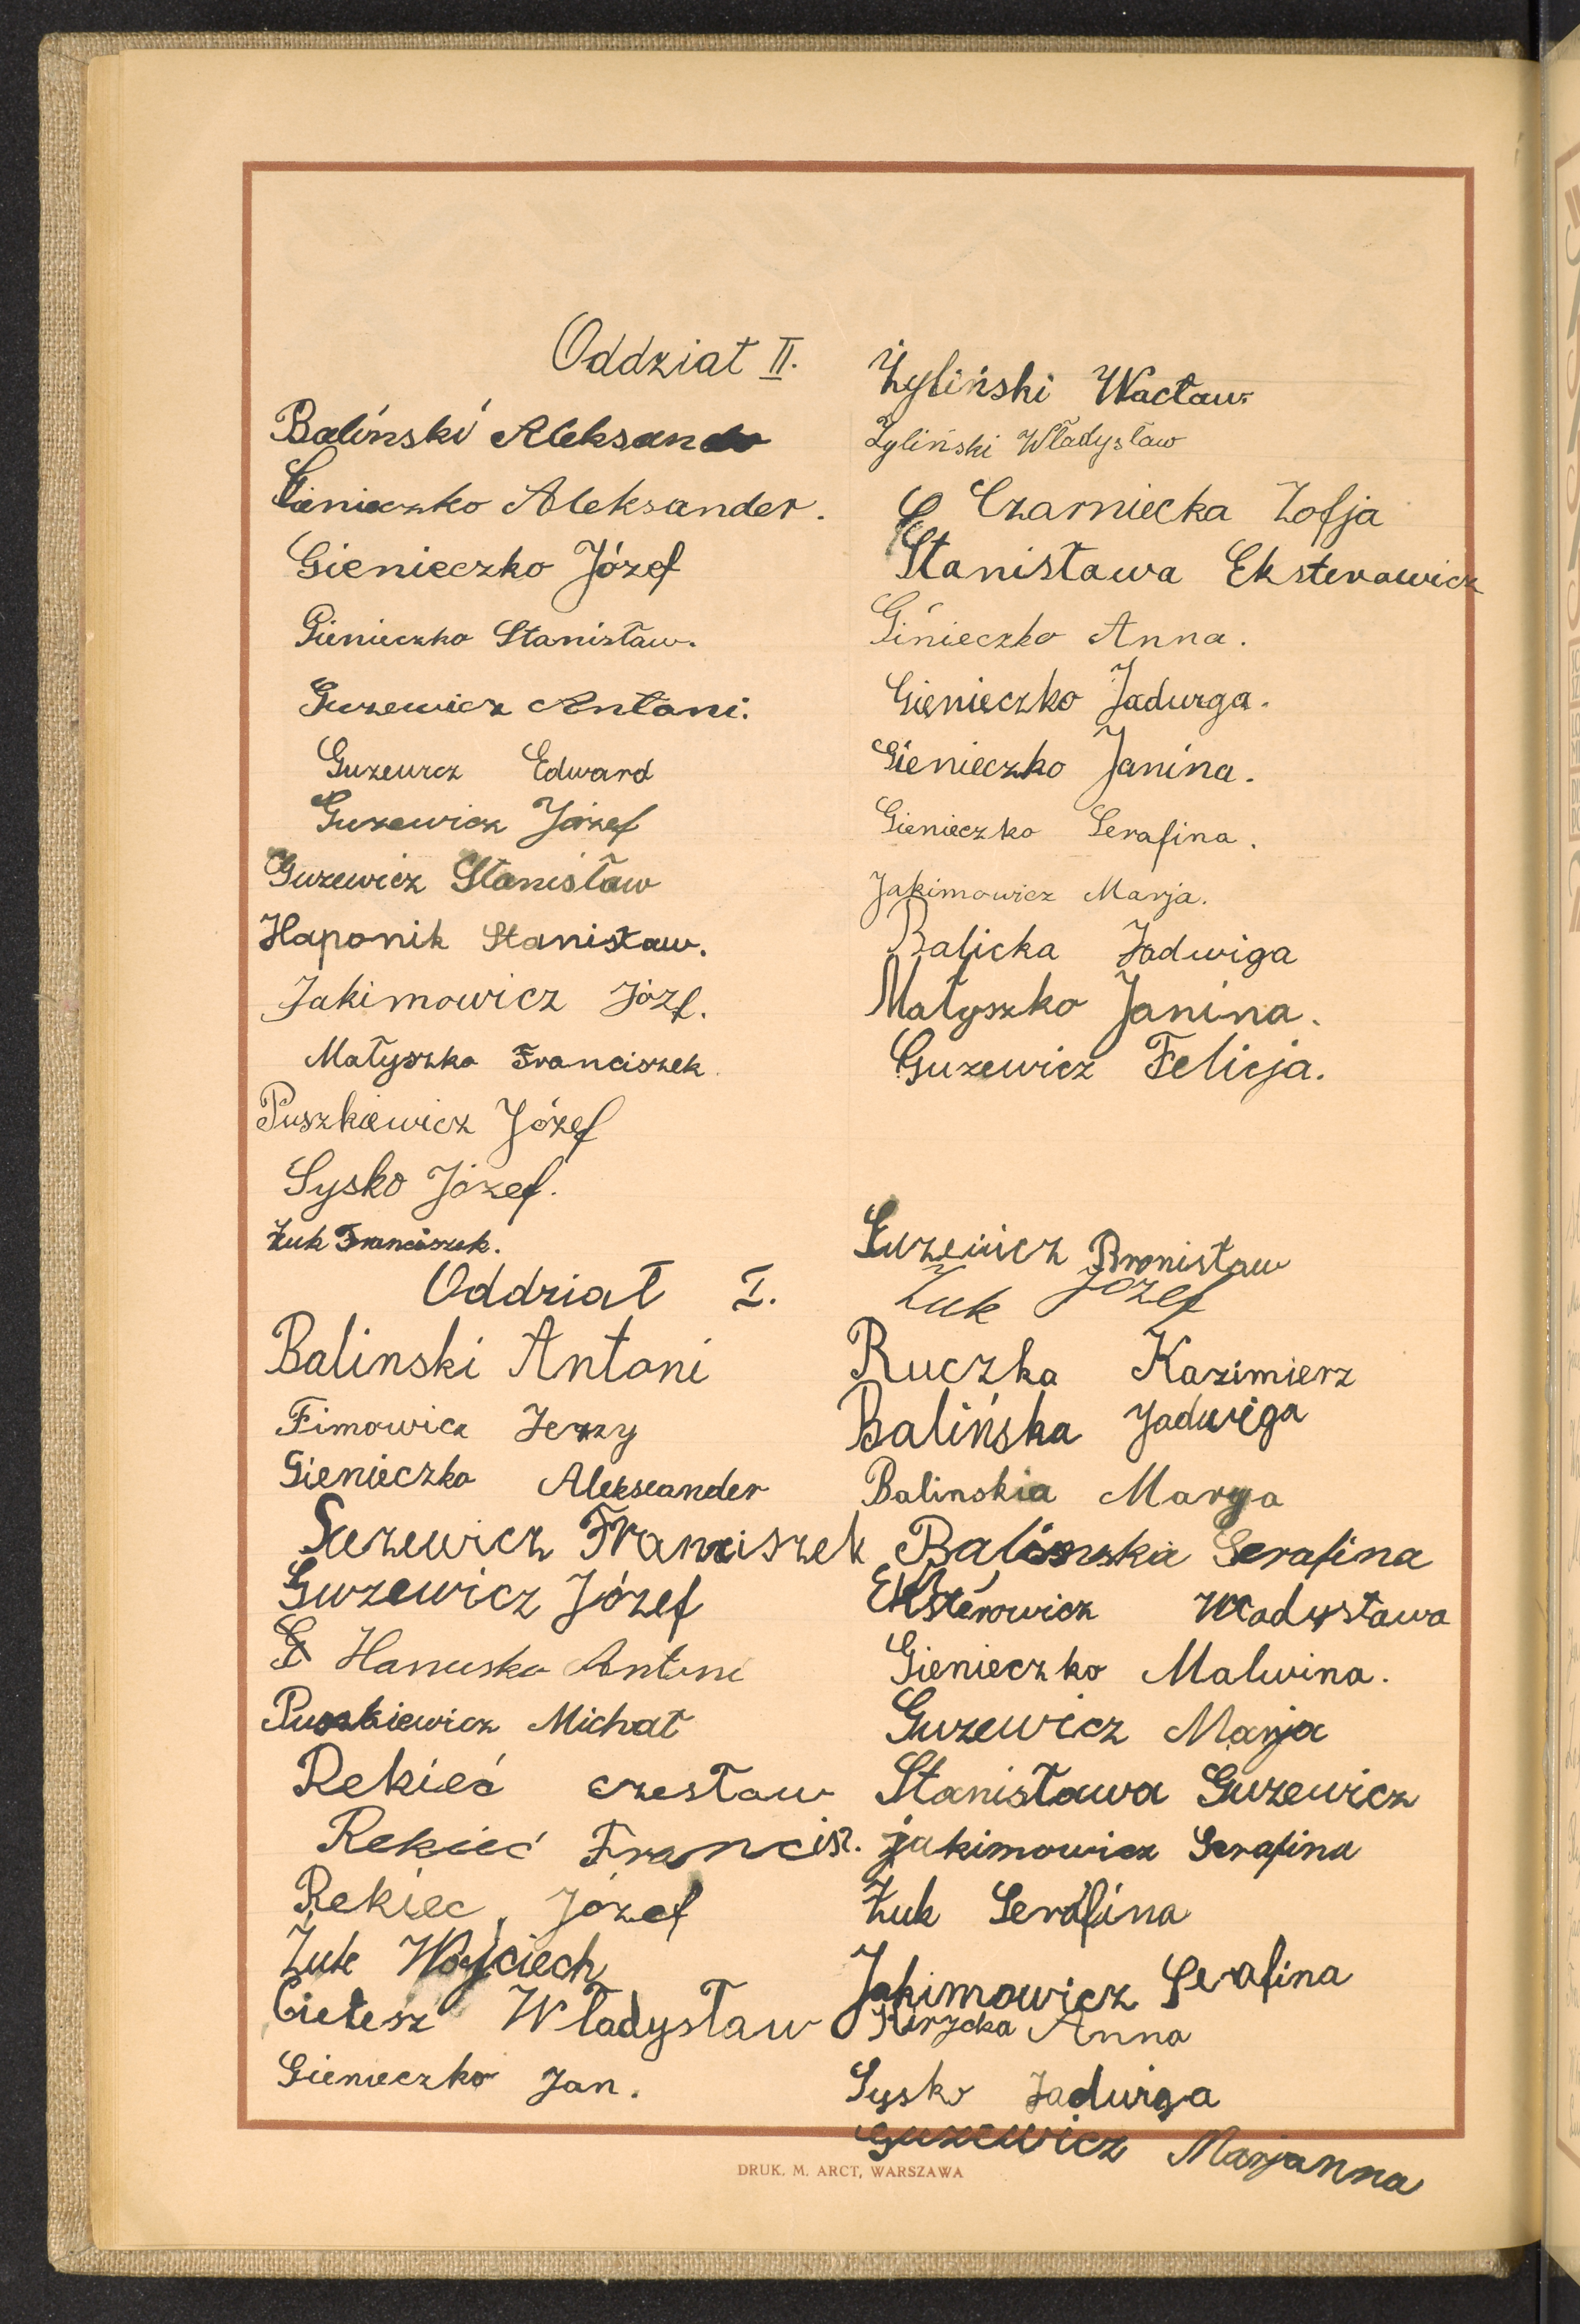 Oddział II.
Baliński Aleksandr
Gienieczko Aleksander.
Gienieczko Józef
Gienieczko Stanisław.
Guzewicz Antoni.
Guzewicz Edward
Guzewicz Józef
Guzewicz Stanisław
Haponik Stanisław.
Jakimowicz Józf.
Małyszko Franciszek
Puszkiewicz Józef
Sysko Józef.
Żuk Franciszek.
Żyliński Wacław
Żyliński Władysław
Czarniecka Zofja
Stanisława Eksterowicz
Ginieczko Anna.
Gienieczko Jadwiga.
Gienieczko Janina.
Gienieczko Serafina.
Jakimowicz Marja.
Balicka Jadwiga
Małyszko Janina.
Guzewicz Felicja.
Oddział I.
Balinski Antoni
Fimowicz Jerzy
Gienieczko Alekseander
Guzewicz Franciszek
Guzewicz Józef
Hanusko Antoni
Puszkiewicz Michał
Rekieć czesław
Rekieć Francisz.
Rekiec Józef
Żuk Wojciech
Cielesz Władysław
Gienieczko Jan.
Guzewicz Bronisław
Żuk Józef
Ruczka Kazimierz
Balińska Jadwiga
Balinskia Marya
Balinska Serafina
Eksterowicz Władysława
Gienieczko Malwina.
Guzewicz Marja
Stanisława Guzewicz
jakimowicz Serafina
Żuk Serafina
Jakimowicz Serafina
Anna
Sysko Jadwiga
Guzewicz Marjanna
DRUK. M. ARCT, WARSZAWA